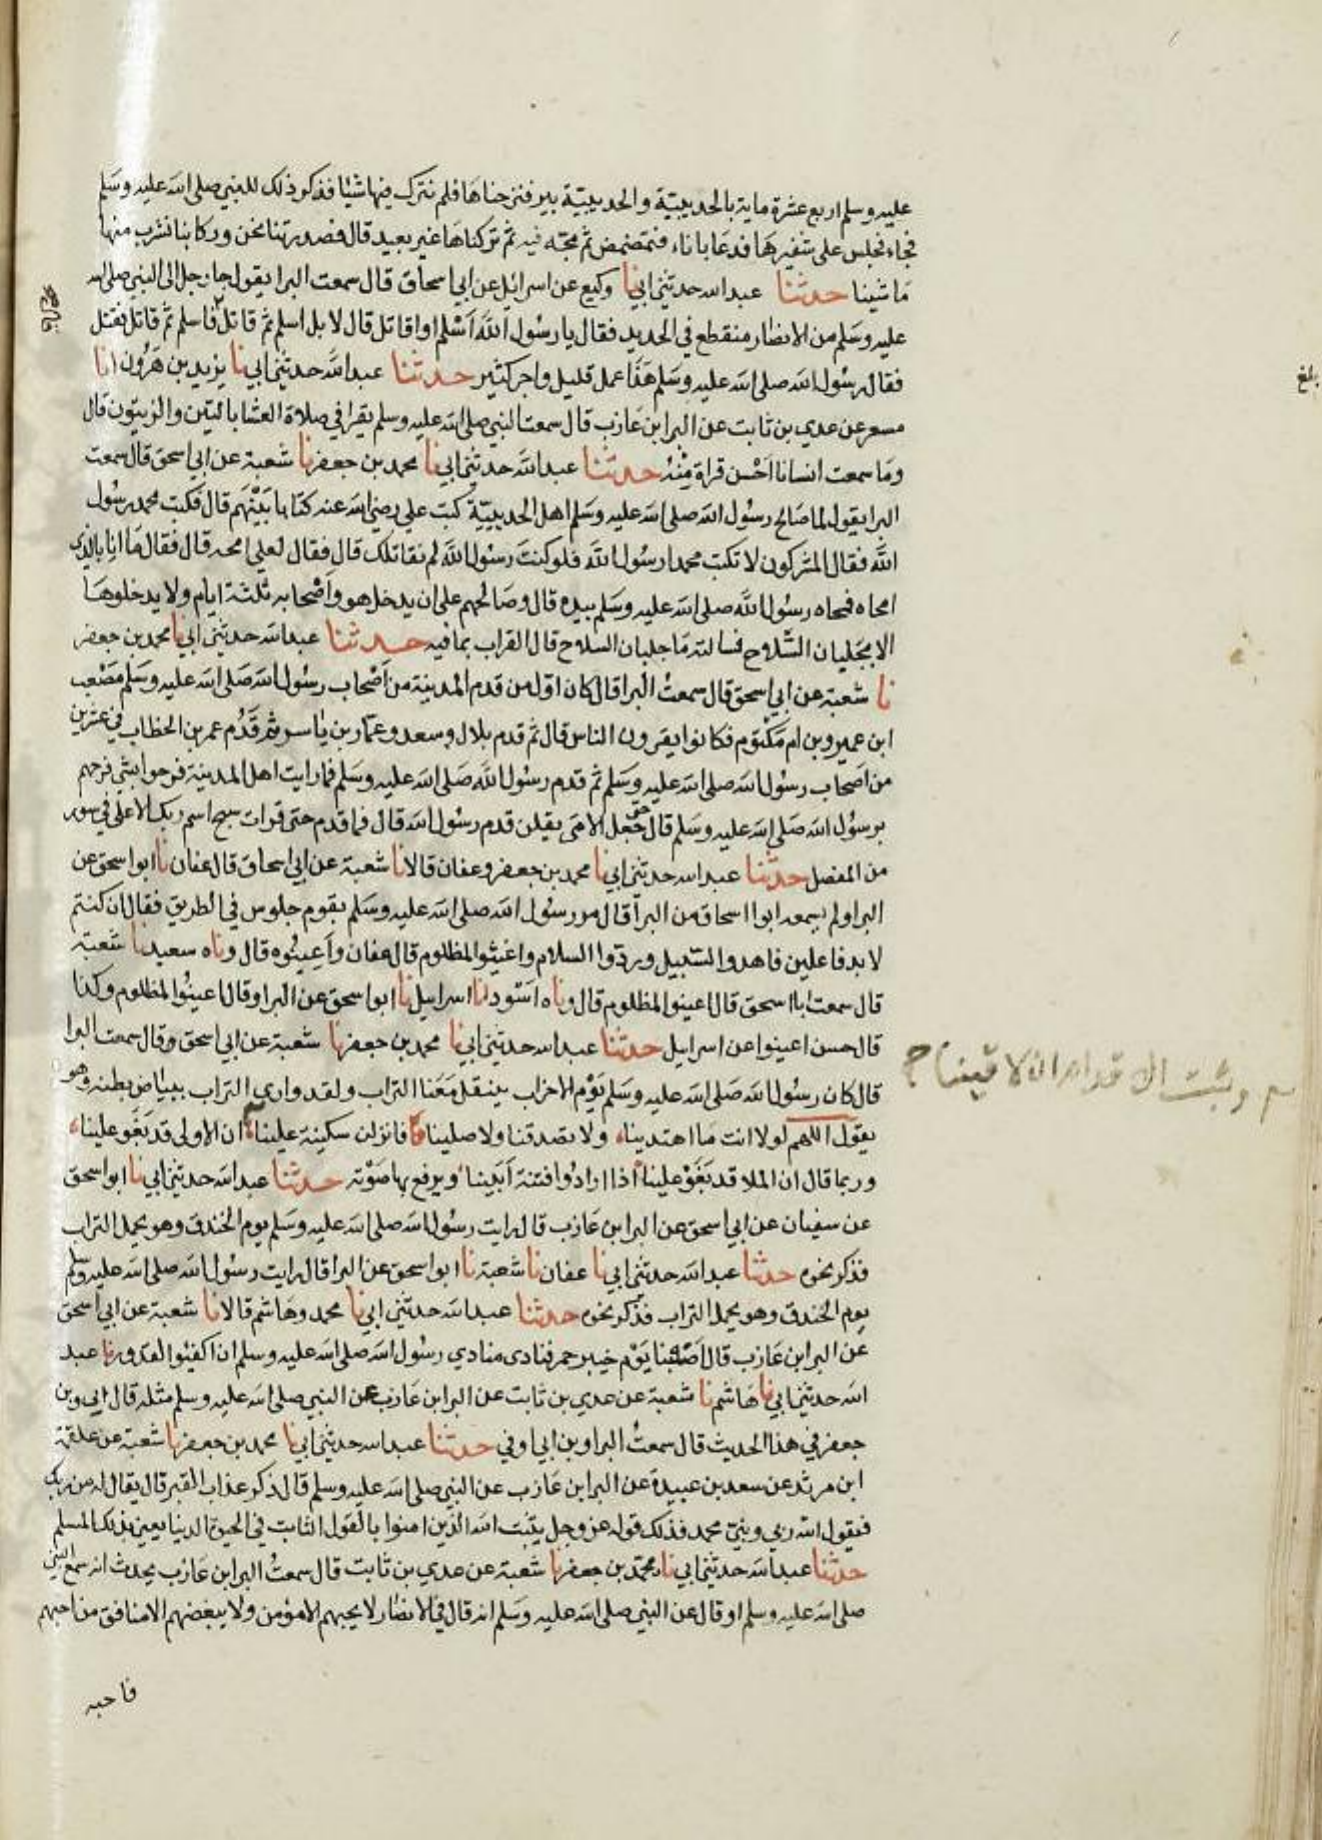 عليه وسلم اربع عشرة ماية بالحديبية والحديبية بير فنزحناها فلم نترك فيها شيئا فذكر ذلك للنبي صلى الله عليه وسلم
فجاء فجلس على شفيرها فدعا باناء فتمضمض ثم مجه فيه ثم تركناها غير بعيد قال فصدرتنا نحن وركابنا نشرب منها
ما شينا حدثنا عبد الله حدثني ابي نا وكيع عن اسرائيل عن ابي اسحاق قال سمعت البرا يقول جا رجل الى النبي صلى الله
عليه وسلم من الانصار منقطع في الحديد فقال يا رسول الله اسلم او اقاتل قال لا بل اسلم ثم قاتل فاسلم ثم قاتل فقتل
فقال رسول الله صلى الله عليه وسلم هذا عمل قليل واجر كثير حدثنا عبد الله حدثني ابي نا يزيد بن هرون انا
مسعر عن عدي بن ثابت عن البرا ابن عازب قال سمعت النبي صلى الله عليه وسلم يقرا في صلاة العشا بالتين والزيتون قال
وما سمعت انسانا احسن قراة منه حدثنا عبد الله حدثني ابي نا محمد بن جعفر نا شعبة عن ابي اسحق قال سمعت
البرا يقول لما صالح رسول الله صلى الله عليه وسلم اهل الحديبية كتب علي رضي الله عنه كتابا بينهم قال فكتب محمد رسول
الله فقال المشركون لا تكتب محمد رسول الله فلو كنت رسول الله لم نقاتلك قال فقال لعلي امحه قال فقال ما انا بالذي
امحاه فمحاه رسول الله صلى الله عليه وسلم بيده قال وصالحهم على ان يدخل هو واصحابه ثلثة ايام ولا يدخلوها
الا بجلبان السلاح فسالته ما جلبان السلاح قال القراب بما فيه حدثنا عبد الله حدثني ابي نا محمد بن جعفر
نا شعبة عن ابي اسحق قال سمعت البرا قال كان اول من قدم المدينة من اصحاب رسول الله صلى الله عليه وسلم مصعب
ابن عمير وبن ام مكتوم فكانوا يقرون الناس قال ثم قدم بلال وسعد وعمار بن ياسر ثم قدم عمر بن الخطاب في عشرين
من اصحاب رسول الله صلى الله عليه وسلم ثم قدم رسول الله صلى الله عليه وسلم فما رايت اهل المدينة فرحوا بشي فرحهم
برسول الله صلى الله عليه وسلم قال حتى جعل الاما يقلن قدم رسول الله قال فما قدم حتى قرات سبح اسم ربك الاعلى في سور
من المفصل حدثنا عبد الله حدثني ابي نا محمد بن جعفر وعفان قالا نا شعبة عن ابي اسحاق قال عفان نا ابو اسحق عن
البرا ولم يسمعه ابوا اسحاق من البرا قال مر رسول الله صلى الله عليه وسلم بقوم جلوس في الطريق فقال ان كنتم
لا بد فاعلين فاهدوا السبيل وردوا السلام واغيثوا المظلوم قال عفان واعينوه قال وناه سعيد نا شعبة
قال سمعت ابا اسحق قال اعينوا المظلوم قال وناه اسود انا اسرايل نا ابو اسحق عن البرا وقال اعينوا المظلوم وكذا
قال حسن اعينوا عن اسرايل حدثنا عبد الله حدثني ابي نا محمد بن جعفر نا شعبة عن ابي اسحق وقال سمعت البرا
قال كان رسول الله صلى الله عليه وسلم يوم الاحزاب ينقل معنا التراب ولقد وارى التراب بياض بطنه وهو
يقول اللهم لولا انت ما اهتدينا ولا تصدقنا ولا صلينا فانزلن سكينة علينا ان الاولى قد بغو علينا
وربما قال ان الملا قد بغو علينا اذا ارادوا فتنة ابينا ويرفع بها صوته حدثنا عبد الله حدثني ابي نا ابو اسحق
عن سفيان عن ابي اسحق عن البرا ابن عازب قال رايت رسول الله صلى الله عليه وسلم يوم الخندق وهو يحمل التراب
فذكر نحوه حدثنا عبد الله حدثني ابي نا عفان نا شعبة نا ابو اسحق عن البرا قال رايت رسول الله صلى الله عليه وسلم
يوم الخندق وهو يحمل التراب فذكر نحوه حدثنا عبد الله حدثني ابي نا محمد وهاشم قالا نا شعبة عن ابي اسحق
عن البرا ابن عازب قال اصبنا يوم خيبر حمر فنادى منادي رسول الله صلى الله عليه وسلم ان اكفئوا القدور نا عبد
الله حدثني ابي نا هاشم نا شعبة عن عدي بن ثابت عن البرا ابن عازب عن النبي صلى الله عليه وسلم مثله قال ابي وبن
جعفر في هذا الحديث قال سمعت البرا وبن ابي اوفى حدثنا عبد الله حدثني ابي نا محمد بن جعفر نا شعبة عن علقمة
ابن مرثد عن سعد بن عبيدة عن البرا ابن عازب عن النبي صلى الله عليه وسلم قال ذكر عذاب القبر قال يقال له من ربك
فيقول الله ربي ونبيي محمد فذلك قوله عز وجل يثبت الله الذين امنوا بالقول الثابت في الحيوة الدنيا يعني بذلك المسلم
حدثنا عبد الله حدثني ابي نا محمد بن جعفر نا شعبة عن عدي بن ثابت قال سمعت البرا ابن عازب يحدث انه سمع النبي
صلى الله عليه وسلم او قال عن النبي صلى الله عليه وسلم انه قال في الانصار لا يحبهم الا مؤمن ولا يبغضهم الا منافق من احبهم
فاحبه
وثبت الاقدام ان لاقينا
بلغ